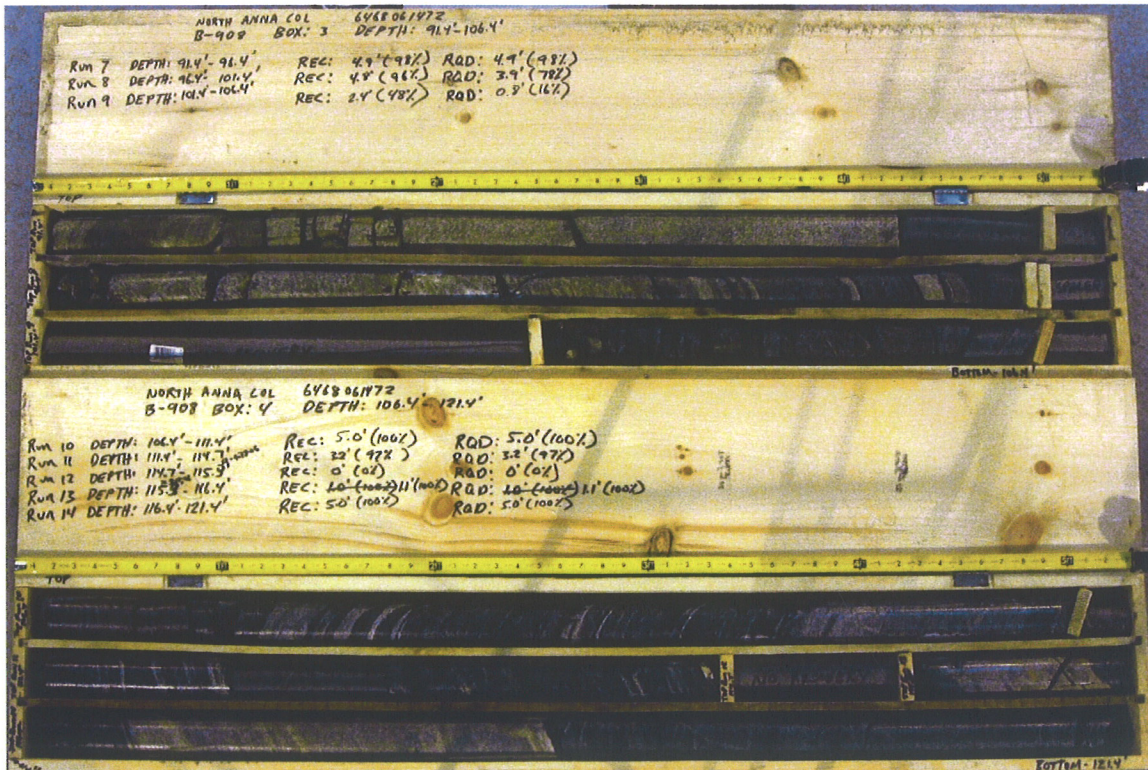 NORTH ANNA COL 6468061472
B-908 BOX: 3 DEPTH: 91.4'-106.4'
Run 7 DEPTH: 91.4'-96.4', REC: 4.9' (98%) RQD: 4.9' (98%)
Run 8 DEPTH: 96.4'-101.4' REC: 4.8' (96%) RQD: 3.9' (78%)
Run 9 DEPTH: 101.4'-106.4' REC: 2.4' (48%) RQD: 0.8' (16%)
TOP
BOTTOM-106.4'
NORTH ANNA COL 6468061472
B-908 BOX: 4 DEPTH: 106.4'-121.4'
Run 10 DEPTH: 106.4'-111.4' REC: 5.0' (100%) RQD: 5.0' (100%)
Run 11 DEPTH: 111.4'-114.7' REC: 3.2' (97%) RQD: 3.2' (97%)
Run 12 DEPTH: 114.7'-115.3' REC: 0' (0%) RQD: 0' (0%)
Run 13 DEPTH: 115.3'-116.4' REC: 1.0' (100%) 1.1' (100%) RQD: 1.0' (100%) 1.1' (100%)
Run 14 DEPTH: 116.4'-121.4' REC: 5.0' (100%) RQD: 5.0' (100%)
TOP
NO RECOVERY
BOTTOM-121.4'